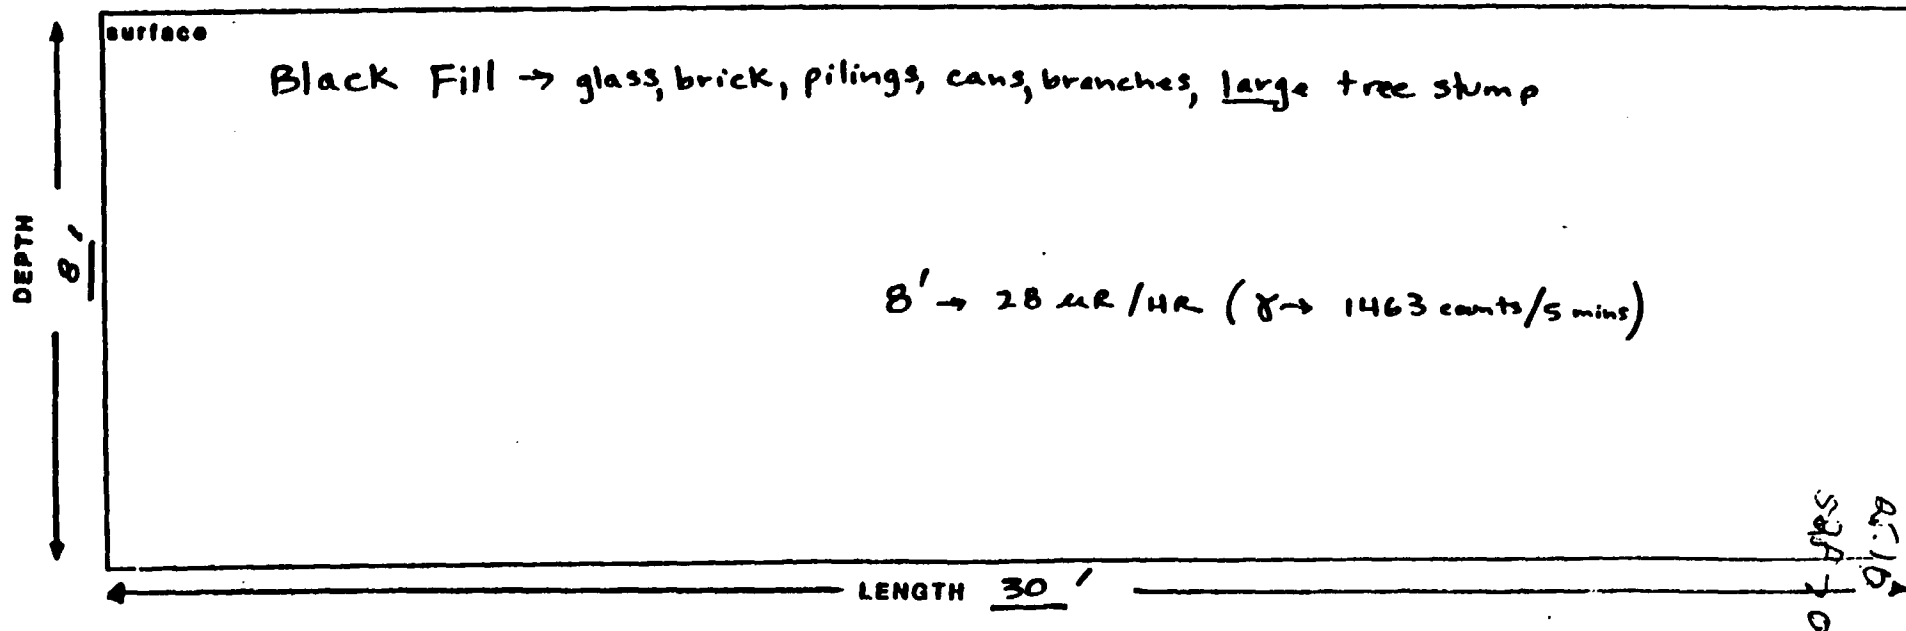 surface
Black Fill → glass, brick, pilings, cans, branches, large tree stump
DEPTH 8'
8' → 28 uR/HR (γ → 1463 counts/5 mins)
LENGTH 30'